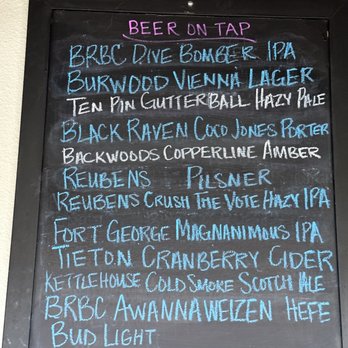 BEER ON TAP
BRBC DIVE BOMBER IPA
BURWOOD VIENNA LAGER
TEN PIN GUTTERBALL HAZY PALE
BLACK RAVEN COCO JONES PORTER
BACKWOODS COPPERLINE AMBER
REUBENS PILSNER
REUBENS CRUSH THE VOTE HAZY IPA
FORT GEORGE MAGNANIMOUS IPA
TIETON CRANBERRY CIDER
KETTLEHOUSE COLD SMOKE SCOTCH ALE
BRBC AWANNAWEIZEN HEFE
BUD LIGHT